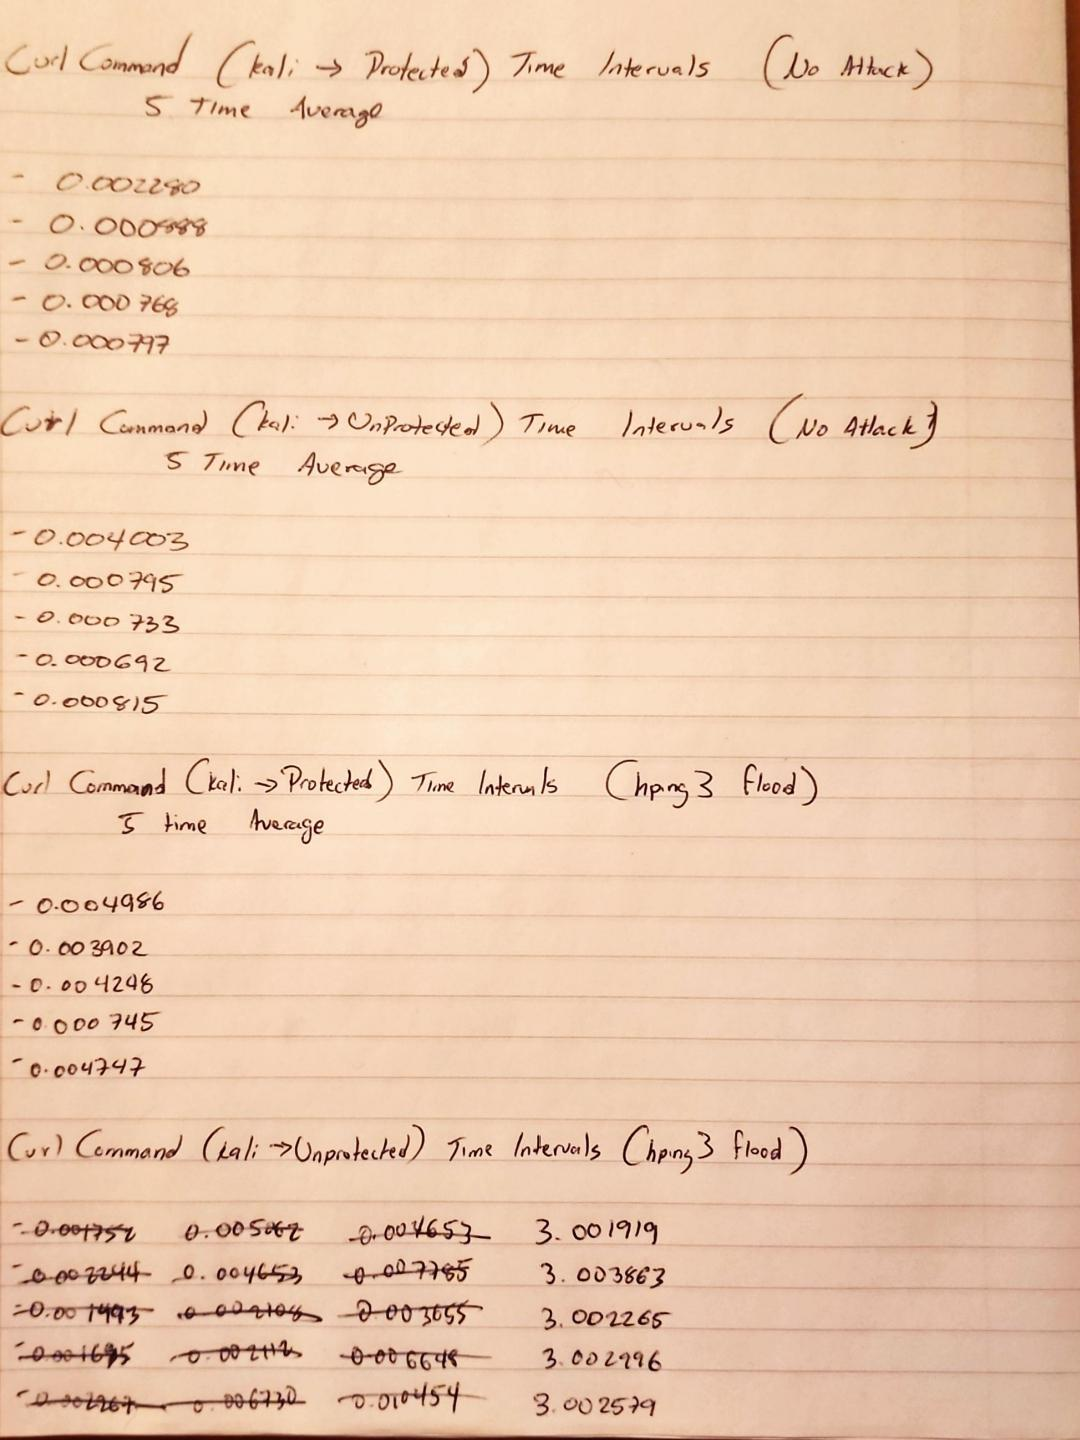 Curl Command (kali → Protected) Time Intervals (No Attack)
5 Time Average
- 0.002280
- 0.000888
- 0.000806
- 0.000768
- 0.000797
Curl Command (kali → UnProtected) Time Intervals (No Attack)
5 Time Average
- 0.004003
- 0.000795
- 0.000733
- 0.000692
- 0.000815
Curl Command (kali → Protected) Time Intervals (hping3 flood)
5 time Average
- 0.004986
- 0.003902
- 0.004248
- 0.000745
- 0.004747
Curl Command (kali → Unprotected) Time Intervals (hping3 flood)
- 0.004653 3.001919
- 0.004653 0.007785 3.003863
- 0.001493 0.003655 3.002265
- 0.001695 0.006648 3.002996
- 0.006730 0.010454 3.002579